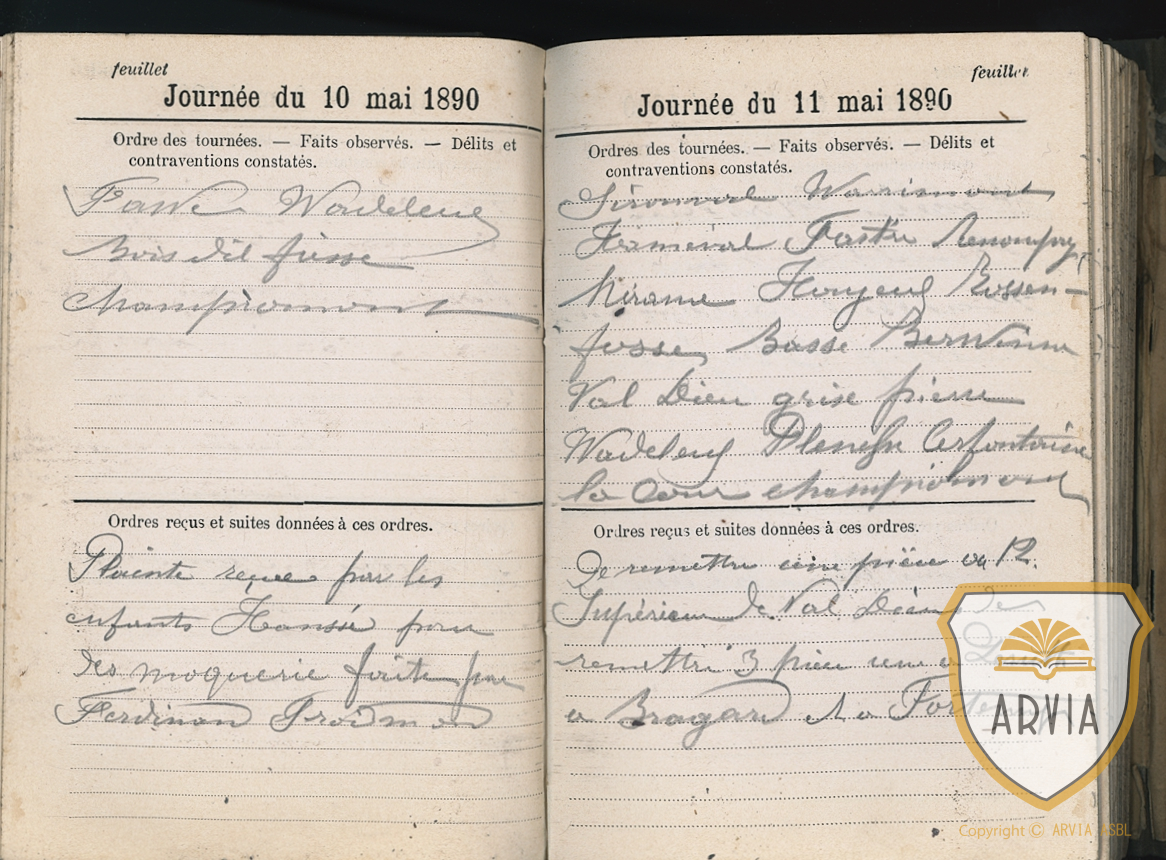 feuillet
Journée du 10 mai 1890
Ordre des tournées. — Faits observés. — Délits et
contraventions constatés.
Fawe Wadeleux
Bois del fiësse
Champiomont
Ordres reçus et suites données à ces ordres.
Plainte reçue par les
enfants Hanssé pour
des moquerie faite par
Ferdinand Froidmon
feuillet
Journée du 11 mai 1890
Ordres des tournées. — Faits observés. — Délits et
contraventions constatés.
Sironval Warrimont
Froimeval Renompay
Mirame Hougeux Rossen-
fosse Basse Berwinne
Val Dieu grise pierre
Wadeleux Cerfontaine
la Cour Championmont
Ordres reçus et suites données à ces ordres.
De remettre une pièce au R.
Supérieur de Val Dieu de
remettre 3 pièce une a
a Bragard et a
ARVIA
Copyright © ARVIA ASBL